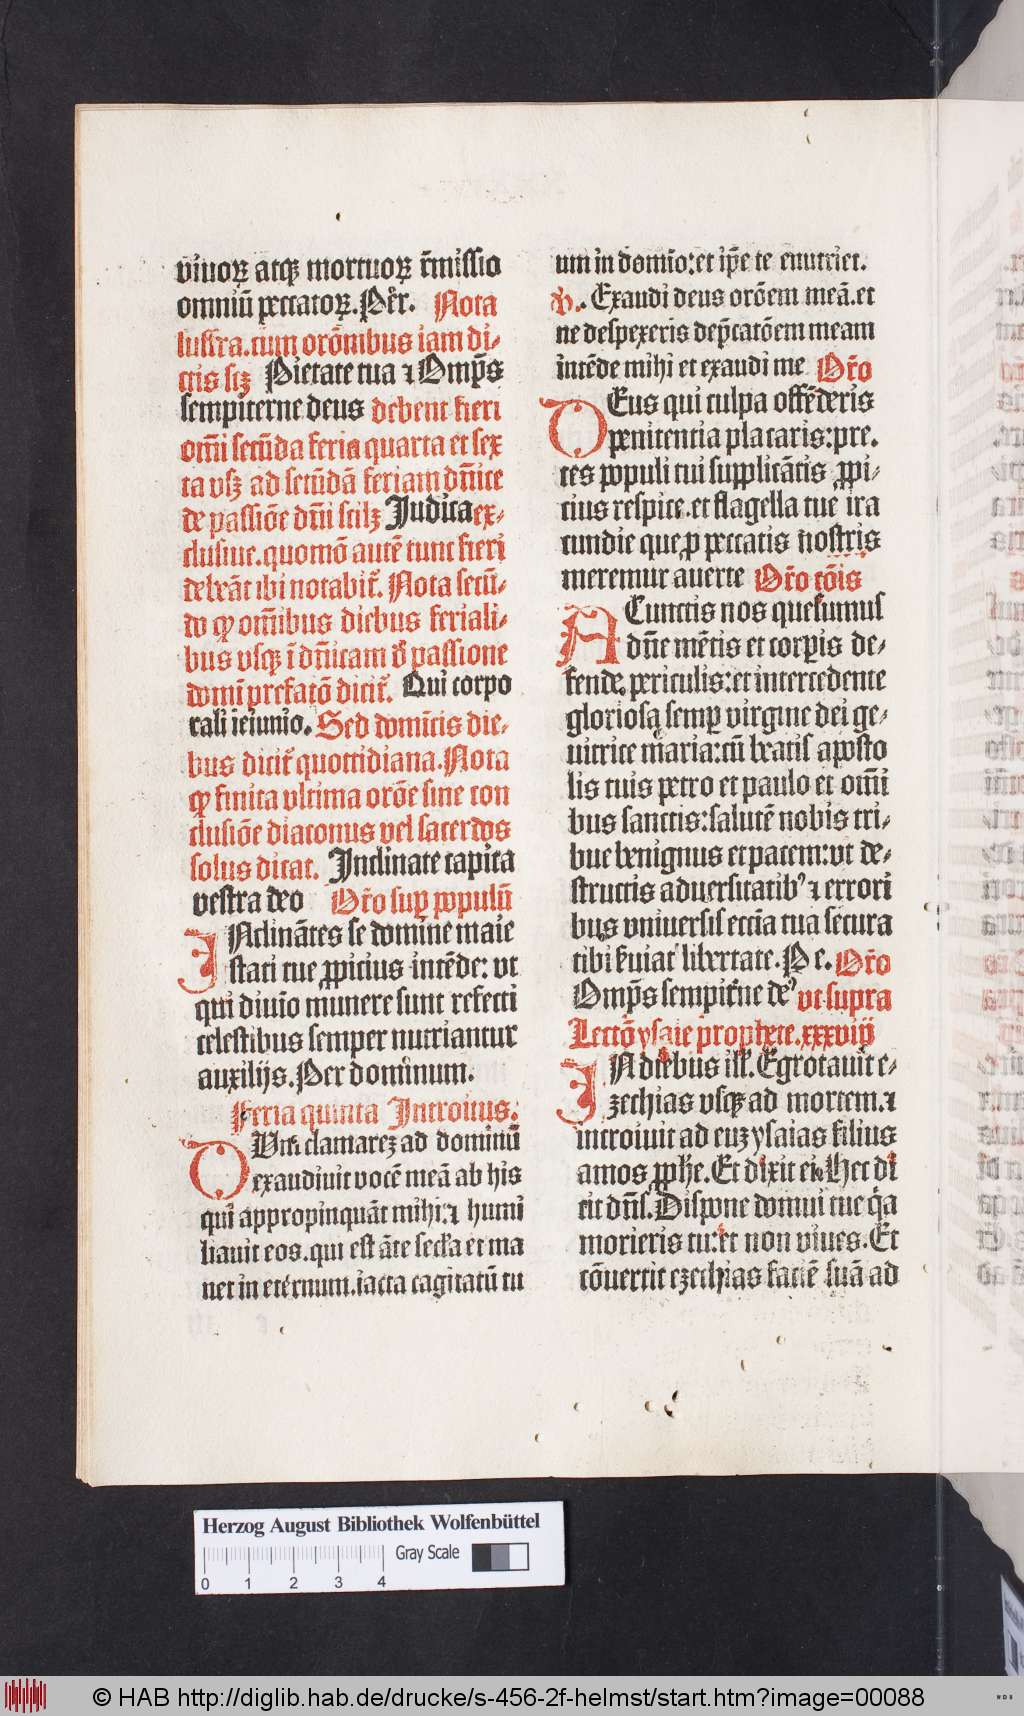 viuoꝝ atqꝫ mortuoꝝ r̄missio
omniū peccatoꝝ. Per̄. Nota
lussra. cum orōnibus iam di⸗
ctis sꝫ Pietate tua ⁊ Omp̄s
sempiterne deus debent fieri
om̄i secūda feria quarta et sex
ta vsqꝫ ad secūdā feriam dn̄ice
de passiōe dn̄i scilꝫ Judica ex⸗
clusiue. quomō autē tunc fieri
debeāt ibi notabit̄. Nota secū⸗
do ꝙ om̄ibus diebus feriali⸗
bus vsqꝫ ī dn̄icam ð passione
domi prefatō dicit̄. Qui corpo
rali ieiunio. Sed domīcis die⸗
bus dicit̄ quottidiana. Nota
ꝙ finita vltima orōe sine con
clusiōe diaconus vel sacerdos
solus dicat. Inclinate capita
vestra deo Or̄o suꝑ populū
INclināntes se domine maie
stati tue ꝓpicius intēde: vt
qui diuīo munere sunt refecti
celestibus semper nutriantur
auxilijs. Per dominum.
Feria quinta Introitus.
DVm clamareꝫ ad dominū
exaudiuit vocē meā ab his
qui appropinquāt mihi: ⁊ humi
liauit eos. qui est āte secła et ma
net in eternum. iacta cogitatū tu
um in domīo: et ip̄e te enutriet.
Ps. Exaudi deus orōem meā. et
ne despexeris dep̄catōem meam
intēde mihi et exaudi me Or̄o
DEus qui culpa offēderis
penitentia placaris: pre⸗
ces populi tui supplicātis ꝓpi⸗
cius respice. et flagella tue ira
cundie que ꝓ peccatis nostris
meremur auerte Or̄o cōis
ACunctis nos quesumus
dn̄e mētis et corꝑis de⸗
fende periculis: et intercedente
gloriosa semꝑ virgine dei ge⸗
nitrice maria: cū beatis aposto
lis tuis petro et paulo et om̄i
bus sanctis: salutē nobis tri⸗
bue benignus et pacem: vt de⸗
structis aduersitatibꝰ ⁊ errori
bus vniuersis eccīa tua secura
tibi ſ̄uiat libertate. Pe. Or̄o
Omp̄s sempit̄ne deꝰ vt supra
Lectō ysaie prophete. xxxviij
IN diebus ill̄. Egrotauit e⸗
zechias vsqꝫ ad mortem. ⁊
introiuit ad eum ysaias filius
amos ꝓph̄e. Et dixit ei. Hec di
cit dn̄s. Dispone domui tue qͣ
morieris tu: et non viues. Et
cōuertit ezechias faciē suā ad
Herzog August Bibliothek Wolfenbüttel
Gray Scale
0 1 2 3 4
© HAB http://diglib.hab.de/drucke/s-456-2f-helmst/start.htm?image=00088